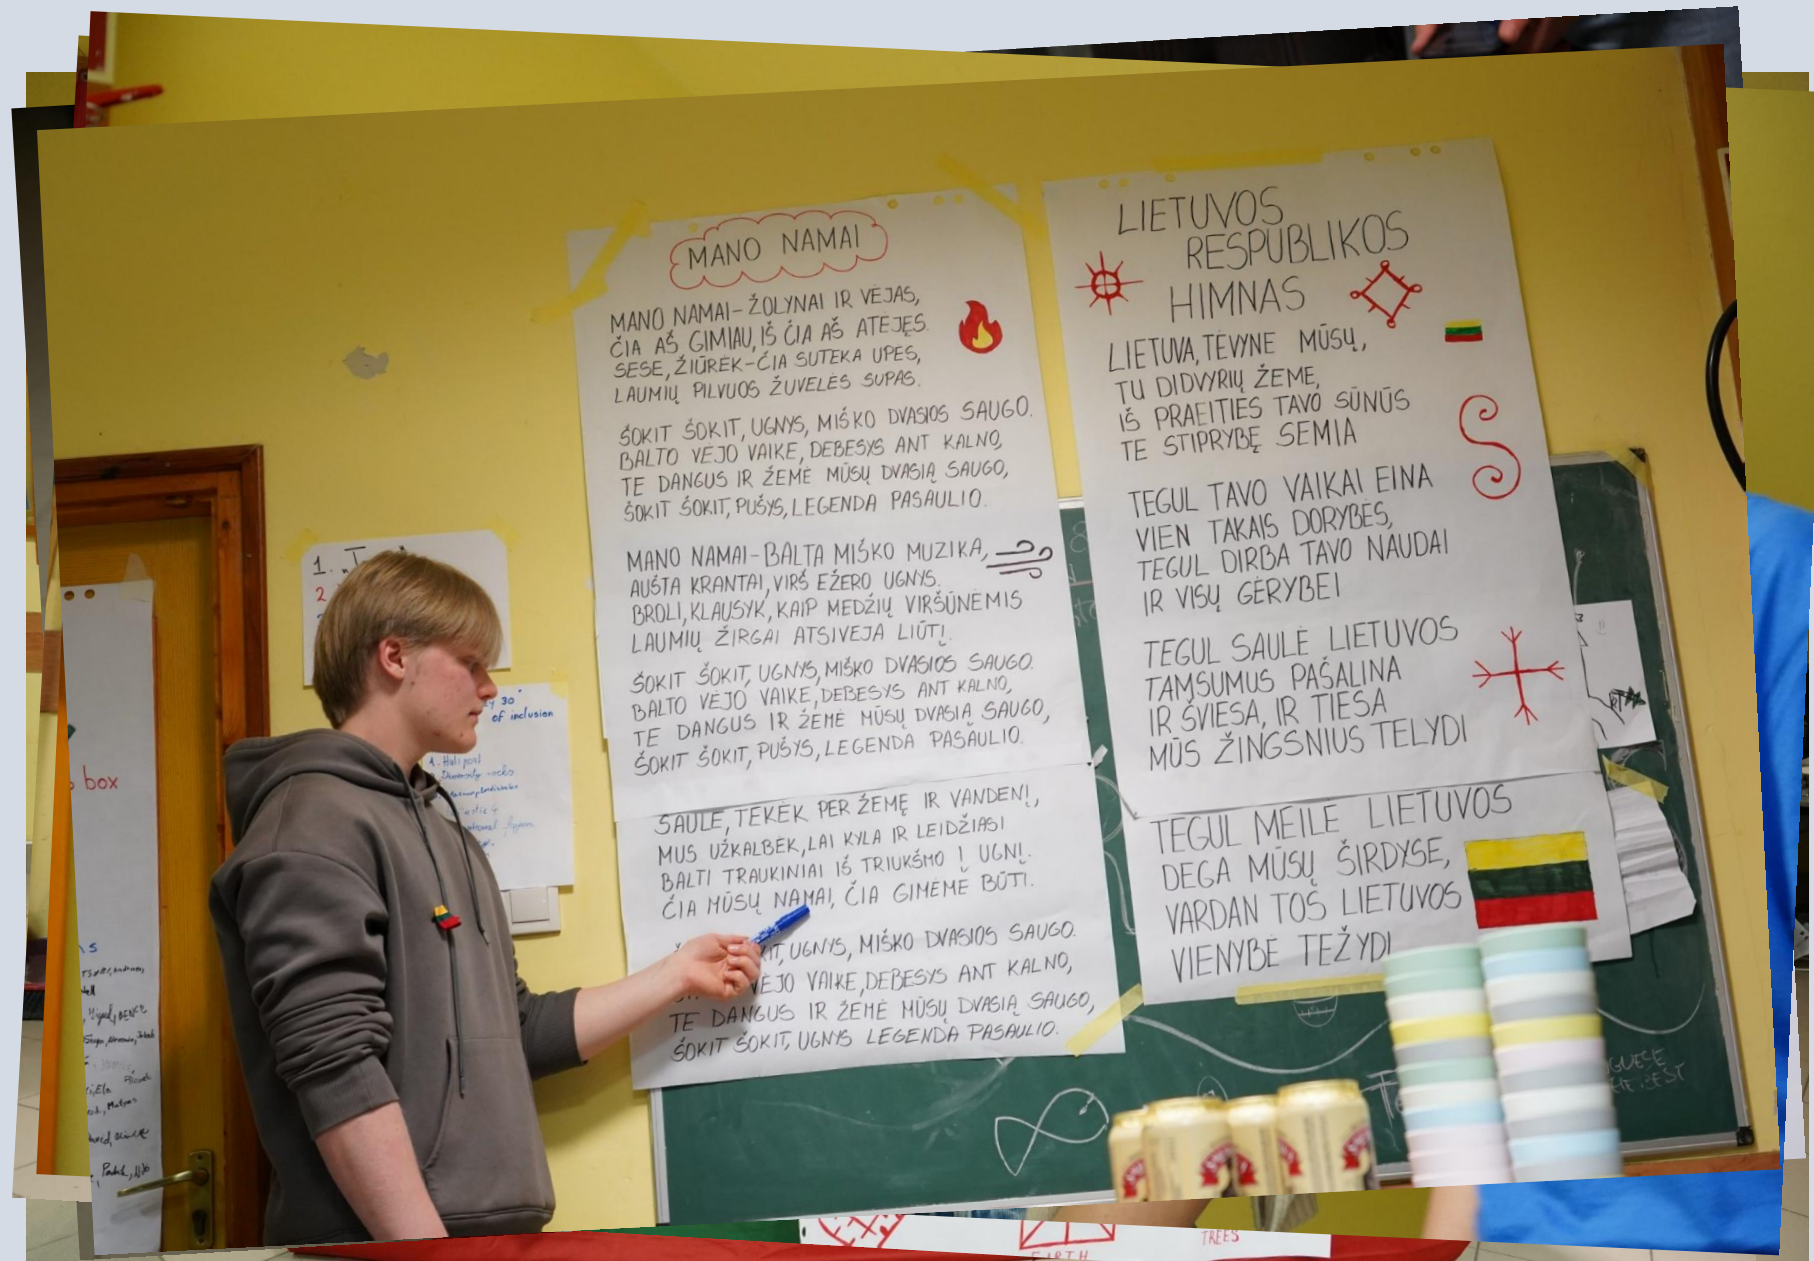 MANO NAMAI
MANO NAMAI - ŽOLYNAI IR VĖJAS,
ČIA AŠ GIMIAU, IŠ ČIA AŠ ATĖJĘS.
SESE, ŽIŪRĖK - ČIA SUTEKA UPĖS,
LAUMIŲ PILVUOS ŽUVELĖS SUPAS.
ŠOKIT ŠOKIT, UGNYS, MIŠKO DVASIOS SAUGO.
BALTO VĖJO VAIKE, DEBESYS ANT KALNO,
TE DANGUS IR ŽEMĖ MŪSŲ DVASIĄ SAUGO,
ŠOKIT ŠOKIT, PUŠYS, LEGENDA PASAULIO.
MANO NAMAI - BALTA MIŠKO MUZIKA,
AUŠTA KRANTAI, VIRŠ EŽERO UGNYS.
BROLI, KLAUSYK, KAIP MEDŽIŲ VIRŠŪNĖMIS
LAUMIŲ ŽIRGAI ATSIVEJA LIŪTĮ.
ŠOKIT ŠOKIT, UGNYS, MIŠKO DVASIOS SAUGO.
BALTO VĖJO VAIKE, DEBESYS ANT KALNO,
TE DANGUS IR ŽEMĖ MŪSŲ DVASIĄ SAUGO,
ŠOKIT ŠOKIT, PUŠYS, LEGENDA PASAULIO.
SAULE, TEKĖK PER ŽEMĘ IR VANDENĮ,
MUS UŽKALBĖK, LAI KYLA IR LEIDŽIASI
BALTI TRAUKINIAI IŠ TRIUKŠMO Į UGNĮ.
ČIA MŪSŲ NAMAI, ČIA GIMĖME BŪTI.
UGNYS, MIŠKO DVASIOS SAUGO.
VĖJO VAIKE, DEBESYS ANT KALNO,
TE DANGUS IR ŽEMĖ MŪSŲ DVASIĄ SAUGO,
ŠOKIT ŠOKIT, UGNYS LEGENDA PASAULIO.
LIETUVOS
RESPUBLIKOS
HIMNAS
LIETUVA, TĖVYNE MŪSŲ,
TU DIDVYRIŲ ŽEME,
IŠ PRAEITIES TAVO SŪNŪS
TE STIPRYBĘ SEMIA
TEGUL TAVO VAIKAI EINA
VIEN TAKAIS DORYBĖS,
TEGUL DIRBA TAVO NAUDAI
IR VISŲ GĖRYBEI
TEGUL SAULĖ LIETUVOS
TAMSUMUS PAŠALINA
IR ŠVIESA, IR TIESA
MŪS ŽINGSNIUS TELYDI
TEGUL MEILĖ LIETUVOS
DEGA MŪSŲ ŠIRDYSE,
VARDAN TOS LIETUVOS
VIENYBĖ TEŽYDI
1.
2
30
of inclusion
box
EARTH
TREES